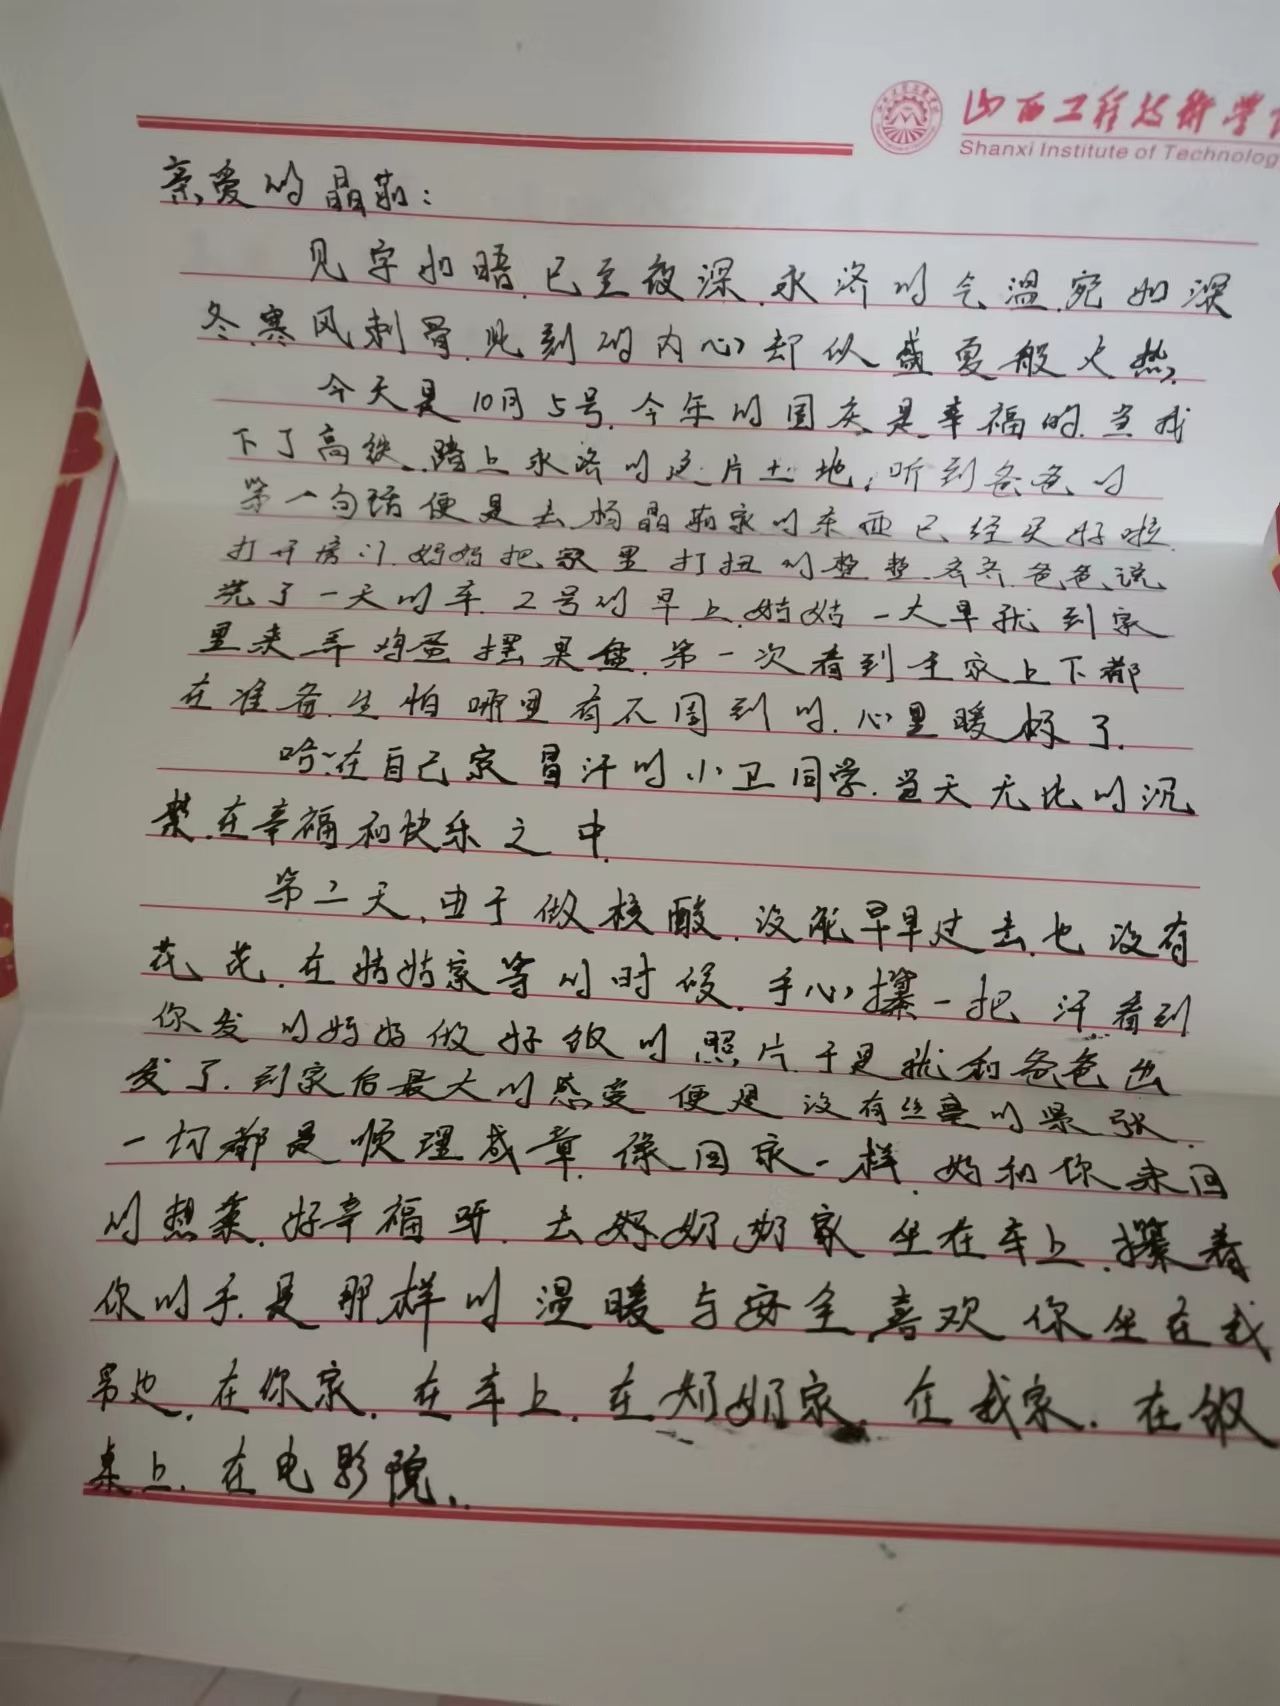 山西工程技术学
Shanxi Institute of Technology
亲爱的晶茹：
见字如晤.已至夜深.永济的气温宛如深
冬.寒风刺骨.此刻的内心却似盛夏般火热.
今天是10月5号.今年的国庆是幸福的.当我
下了高铁.踏上永济的这片土地,听到爸爸的
第一句话便是去杨晶茹家的东西已经买好啦.
打开房门.妈妈把家里打扫的整整齐齐.爸爸说
洗了一天的车.2号的早上.姑姑一大早就到家
里来弄鸡蛋摆果盘.第一次看到全家上下都
在准备.生怕哪里有不周到的.心里暖极了.
哈:在自己家冒汗的小卫同学.当天无比的沉
浸.在幸福和快乐之中.
第二天,由于做核酸.没能早早过去.也没有
花花.在姑姑家等的时候.手心攥一把汗.看到
你发的妈妈做好饭的照片.于是我和爸爸出
发了.到家后最大的感受便是没有丝毫的紧张.
一切都是顺理成章.像回家一样.妈和你来回
的热菜.好幸福呀.去奶奶家坐在车上.攥着
你的手.是那样的温暖与安全.喜欢你坐在我
旁边.在你家.在车上.在奶奶家.在我家.在饭
桌上.在电影院..